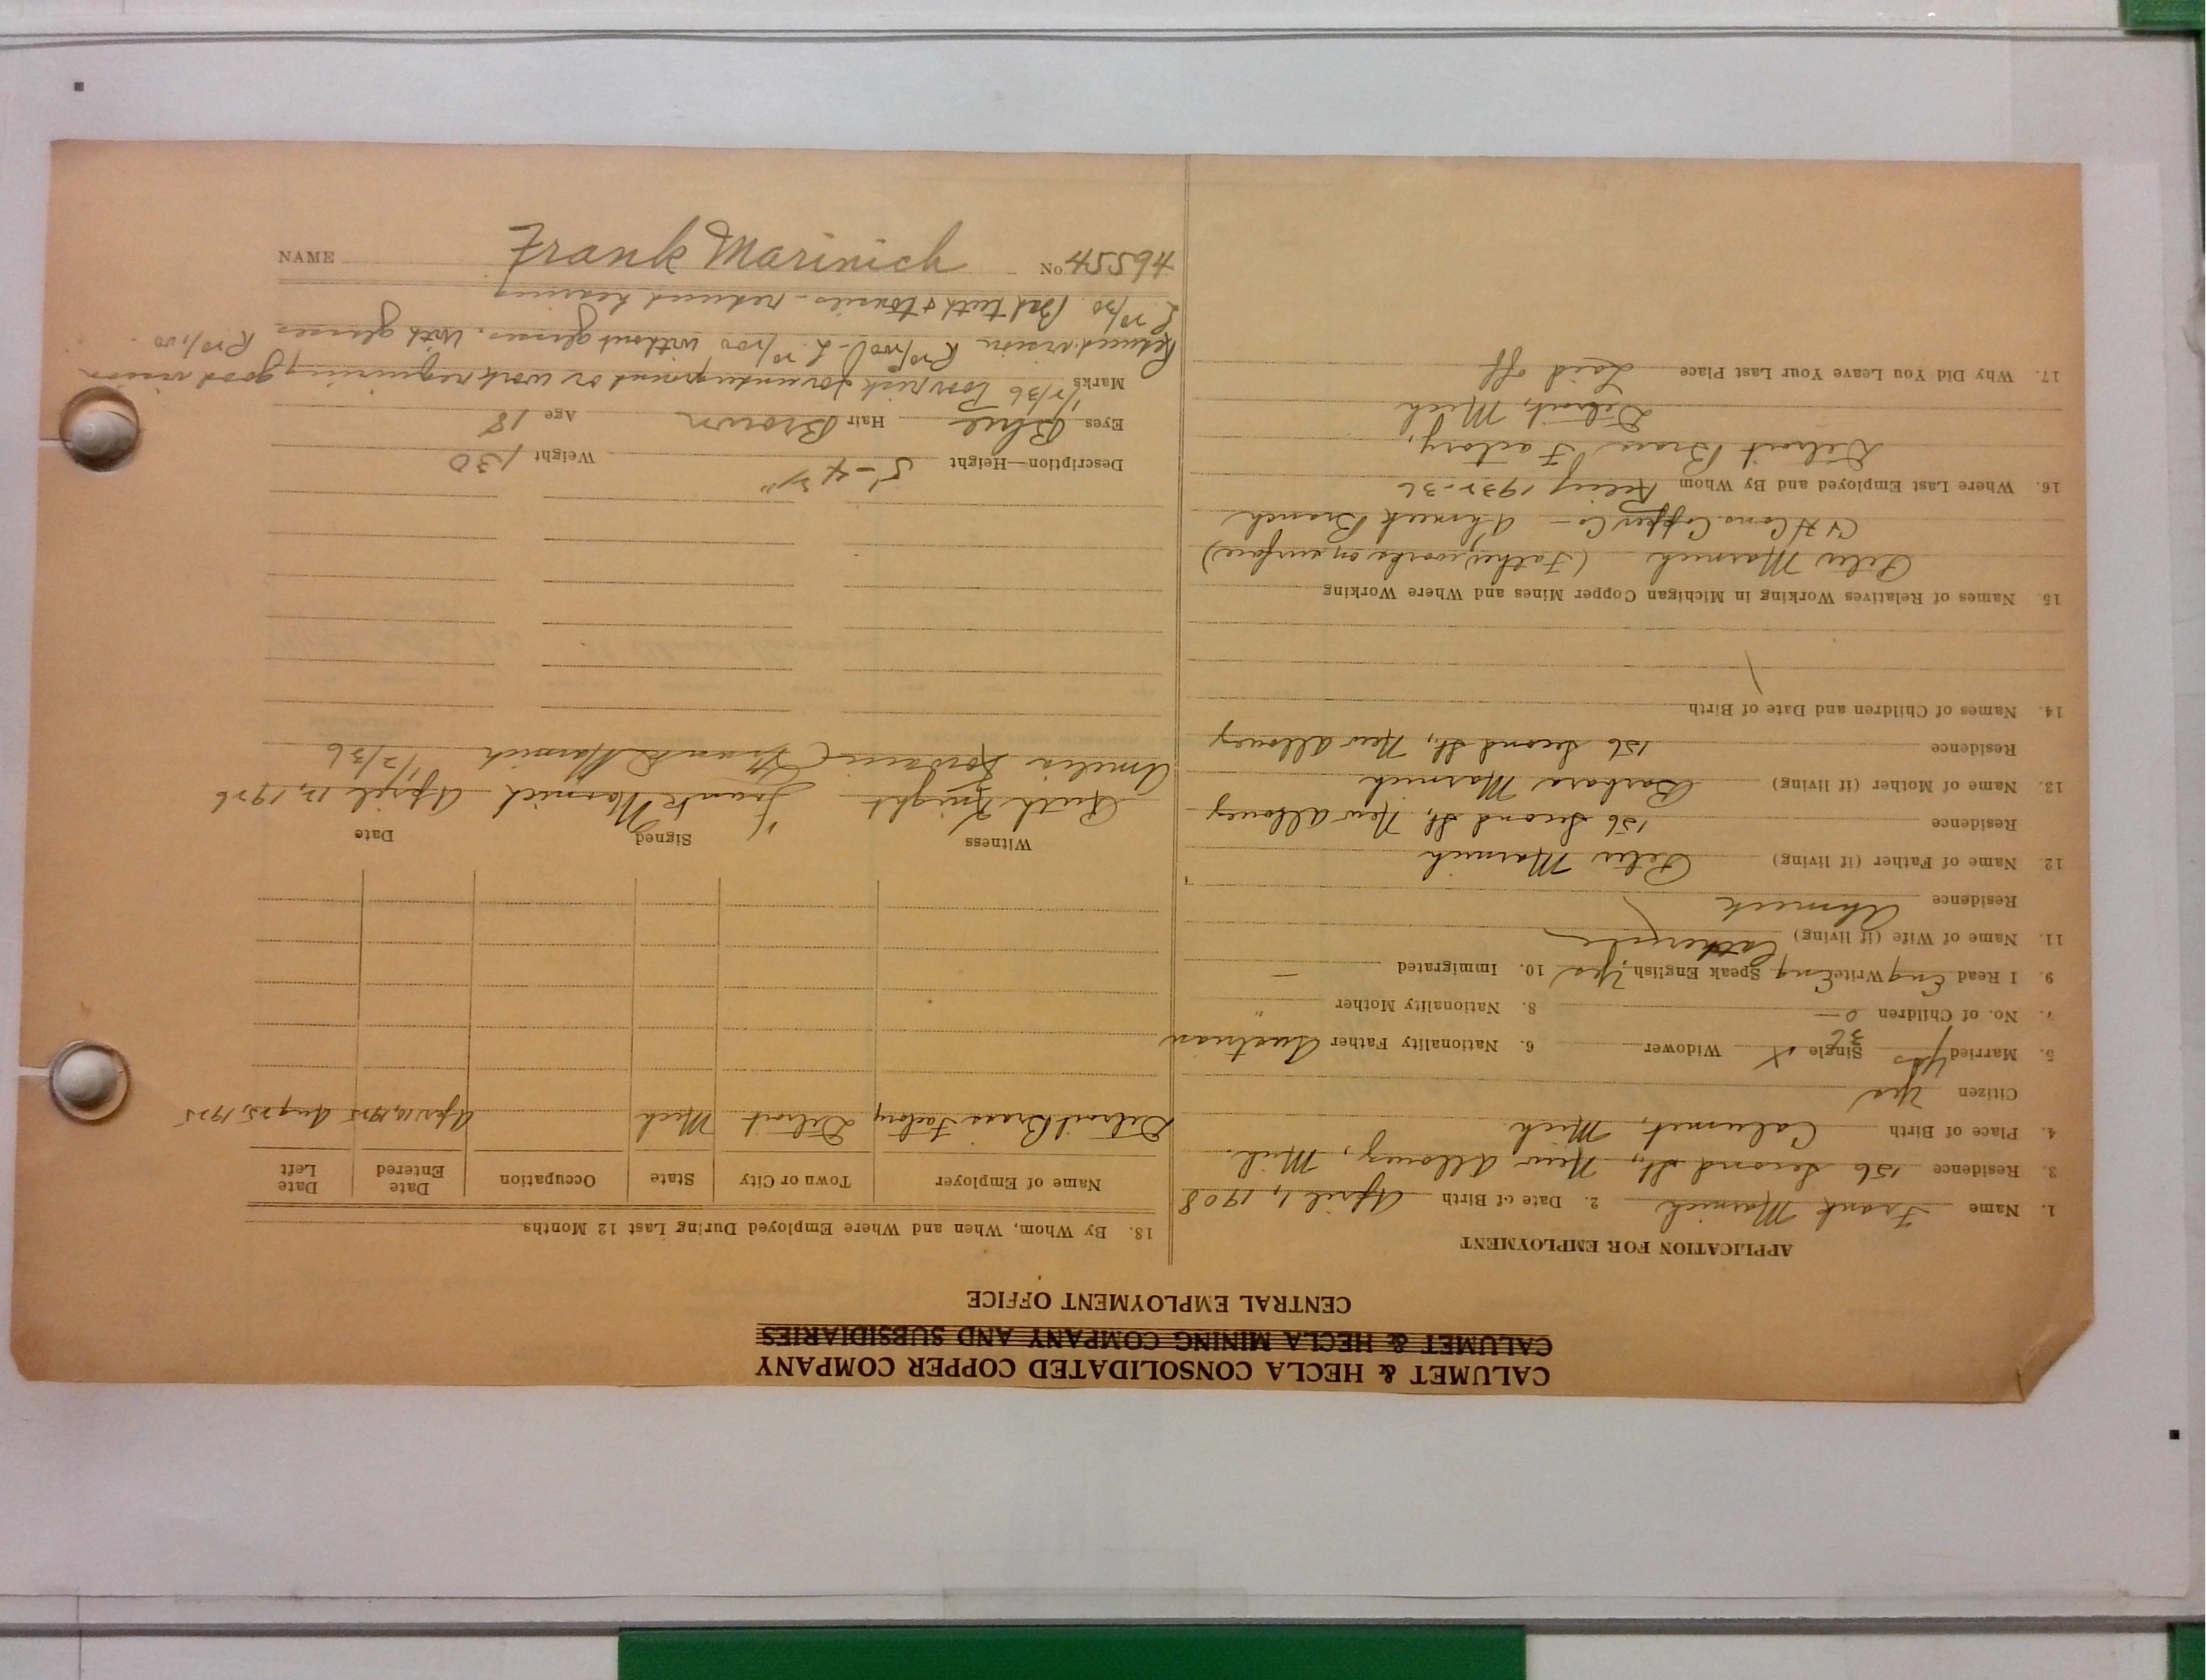 CALUMET & HECLA CONSOLIDATED COPPER COMPANY
CALUMET & HECLA MINING COMPANY AND SUBSIDIARIES
CENTRAL EMPLOYMENT OFFICE
APPLICATION FOR EMPLOYMENT
1. Name Frank Marinich 2. Date of Birth April 1, 1908
3. Residence 156 Second St., New Allouez, Mich.
4. Place of Birth Calumet, Mich
Citizen Yes
5. Married Yes 36 Single X Widower 6. Nationality Father Austrian
7. No. of Children 0 8. Nationality Mother "
9. I Read Eng Write Eng Speak English Yes 10. Immigrated —
11. Name of Wife (if living) Catherine
Residence Ahmeek
12. Name of Father (if living) Peter Marinich
Residence 156 Second St, New Allouez
13. Name of Mother (if living) Barbara Marinich
Residence 156 Second St, New Allouez
14. Names of Children and Date of Birth
15. Names of Relatives Working in Michigan Copper Mines and Where Working
Peter Marinich (Father) works on surface)
C & H Cons. Copper Co - Ahmeek Branch
16. Where Last Employed and By Whom 1935-36
Detroit Brass Factory,
Detroit, Mich
17. Why Did You Leave Your Last Place Laid off
18. By Whom, When and Where Employed During Last 12 Months
Name of Employer Town or City State Occupation Date Entered Date Left
Detroit Brass Factory Detroit Mich Apr. 10, 1925 Aug 25, 1925
Witness Signed Date
Ruth Knight Frank Marinich April 12, 1926
Amelia Frank Marinich 1/2/36
Description—Height 5'-4 3/4" Weight 130
Eyes Blue Hair Brown Age 18
Marks 1/2/36 Poor risk for underground or work requiring good vision
Reduced vision R 20/200 - L 20/200 without glasses. With glasses R 20/100
L 20/30 Bad teeth & tonsils - reduced hearing
NAME Frank Marinich No 45594